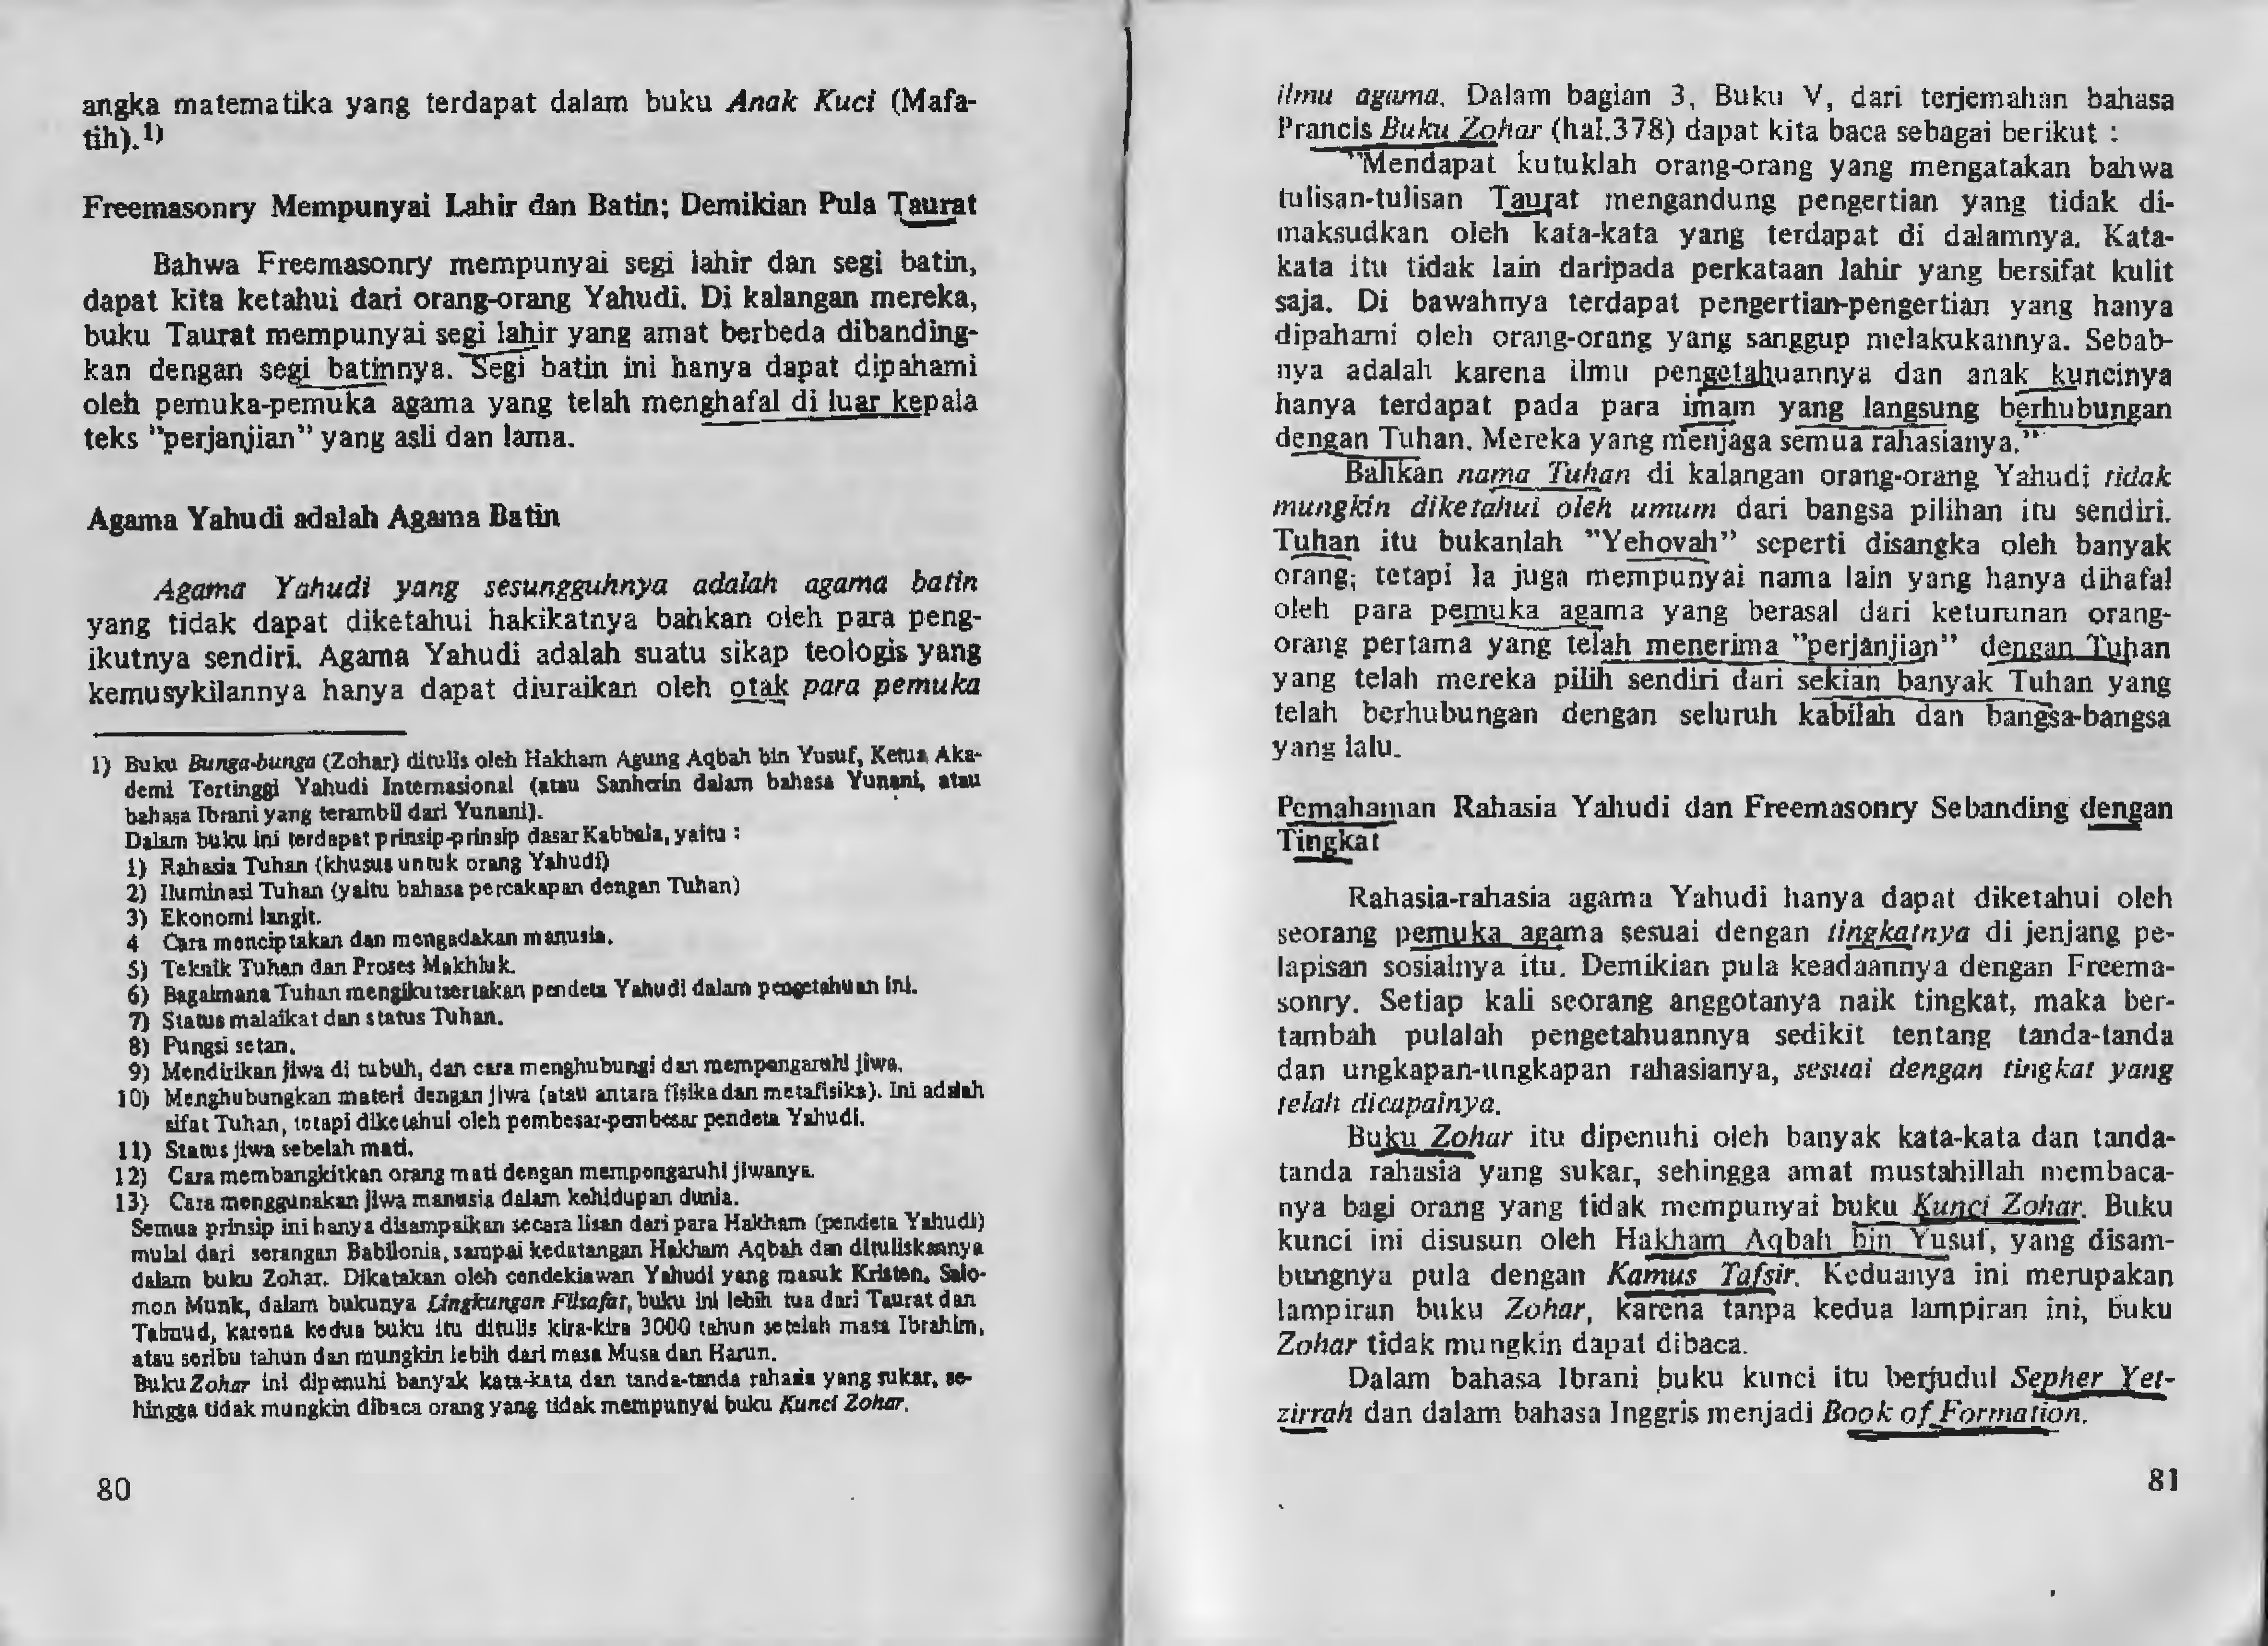 angka matematika yang terdapat dalam buku Anak Kuci (Mafa-
tih).1)
Freemasonry Mempunyai Lahir dan Batin; Demikian Pula Taurat
Bahwa Freemasonry mempunyai segi lahir dan segi batin,
dapat kita ketahui dari orang-orang Yahudi. Di kalangan mereka,
buku Taurat mempunyai segi lahir yang amat berbeda dibanding-
kan dengan segi batinnya. Segi batin ini hanya dapat dipahami
oleh pemuka-pemuka agama yang telah menghafal di luar kepala
teks ''perjanjian'' yang asli dan lama.
Agama Yahudi adalah Agama Batin
Agama Yahudi yang sesungguhnya adalah agama batin
yang tidak dapat diketahui hakikatnya bahkan oleh para peng-
ikutnya sendiri. Agama Yahudi adalah suatu sikap teologis yang
kemusykilannya hanya dapat diuraikan oleh otak para pemuka
1) Buku Bunga-bunga (Zohar) ditulis oleh Hakham Agung Aqbah bin Yusuf, Ketua Aka-
demi Tertinggi Yahudi Internasional (atau Sanherin dalam bahasa Yunani, atau
bahasa Ibrani yang terambil dari Yunani).
Dalam buku ini terdapat prinsip-prinsip dasar Kabbala, yaitu :
1) Rahasia Tuhan (khusus untuk orang Yahudi)
2) Iluminasi Tuhan (yaitu bahasa percakapan dengan Tuhan)
3) Ekonomi langit.
4 Cara menciptakan dan mengadakan manusia.
5) Teknik Tuhan dan Proses Makhluk.
6) Bagaimana Tuhan mengikutsertakan pendeta Yahudi dalam pengetahuan ini.
7) Status malaikat dan status Tuhan.
8) Fungsi setan.
9) Mendirikan jiwa di tubuh, dan cara menghubungi dan mempengaruhi jiwa.
10) Menghubungkan materi dengan jiwa (atau antara fisika dan metafisika). Ini adalah
sifat Tuhan, tetapi diketahui oleh pembesar-pembesar pendeta Yahudi.
11) Status jiwa sebelah mati.
12) Cara membangkitkan orang mati dengan mempengaruhi jiwanya.
13) Cara menggunakan jiwa manusia dalam kehidupan dunia.
Semua prinsip ini hanya disampaikan secara lisan dari para Hakham (pendeta Yahudi)
mulai dari serangan Babilonia, sampai kedatangan Hakham Aqbah dan dituliskannya
dalam buku Zohar. Dikatakan oleh cendekiawan Yahudi yang masuk Kristen, Salo-
mon Munk, dalam bukunya Lingkungan Filsafat, buku ini lebih tua dari Taurat dan
Talmud, karena kedua buku itu ditulis kira-kira 3000 tahun setelah masa Ibrahim,
atau seribu tahun dan mungkin lebih dari masa Musa dan Harun.
Buku Zohar ini dipenuhi banyak kata-kata dan tanda-tanda rahasia yang sukar, se-
hingga tidak mungkin dibaca orang yang tidak mempunyai buku Kunci Zohar.
80
ilmu agama. Dalam bagian 3, Buku V, dari terjemahan bahasa
Prancis Buku Zohar (hal.378) dapat kita baca sebagai berikut :
''Mendapat kutuklah orang-orang yang mengatakan bahwa
tulisan-tulisan Taurat mengandung pengertian yang tidak di-
maksudkan oleh kata-kata yang terdapat di dalamnya. Kata-
kata itu tidak lain daripada perkataan lahir yang bersifat kulit
saja. Di bawahnya terdapat pengertian-pengertian yang hanya
dipahami oleh orang-orang yang sanggup melakukannya. Sebab-
nya adalah karena ilmu pengetahuannya dan anak kuncinya
hanya terdapat pada para imam yang langsung berhubungan
dengan Tuhan. Mereka yang menjaga semua rahasianya.''
Bahkan nama Tuhan di kalangan orang-orang Yahudi tidak
mungkin diketahui oleh umum dari bangsa pilihan itu sendiri.
Tuhan itu bukanlah ''Yehovah'' seperti disangka oleh banyak
orang; tetapi Ia juga mempunyai nama lain yang hanya dihafal
oleh para pemuka agama yang berasal dari keturunan orang-
orang pertama yang telah menerima ''perjanjian'' dengan Tuhan
yang telah mereka pilih sendiri dari sekian banyak Tuhan yang
telah berhubungan dengan seluruh kabilah dan bangsa-bangsa
yang lalu.
Pemahaman Rahasia Yahudi dan Freemasonry Sebanding dengan
Tingkat
Rahasia-rahasia agama Yahudi hanya dapat diketahui oleh
seorang pemuka agama sesuai dengan tingkatnya di jenjang pe-
lapisan sosialnya itu. Demikian pula keadaannya dengan Freema-
sonry. Setiap kali seorang anggotanya naik tingkat, maka ber-
tambah pulalah pengetahuannya sedikit tentang tanda-tanda
dan ungkapan-ungkapan rahasianya, sesuai dengan tingkat yang
telah dicapainya.
Buku Zohar itu dipenuhi oleh banyak kata-kata dan tanda-
tanda rahasia yang sukar, sehingga amat mustahillah membaca-
nya bagi orang yang tidak mempunyai buku Kunci Zohar. Buku
kunci ini disusun oleh Hakham Aqbah bin Yusuf, yang disam-
bungnya pula dengan Kamus Tafsir. Keduanya ini merupakan
lampiran buku Zohar, karena tanpa kedua lampiran ini, buku
Zohar tidak mungkin dapat dibaca.
Dalam bahasa Ibrani buku kunci itu berjudul Sepher Yet-
zirrah dan dalam bahasa Inggris menjadi Book of Formation.
81